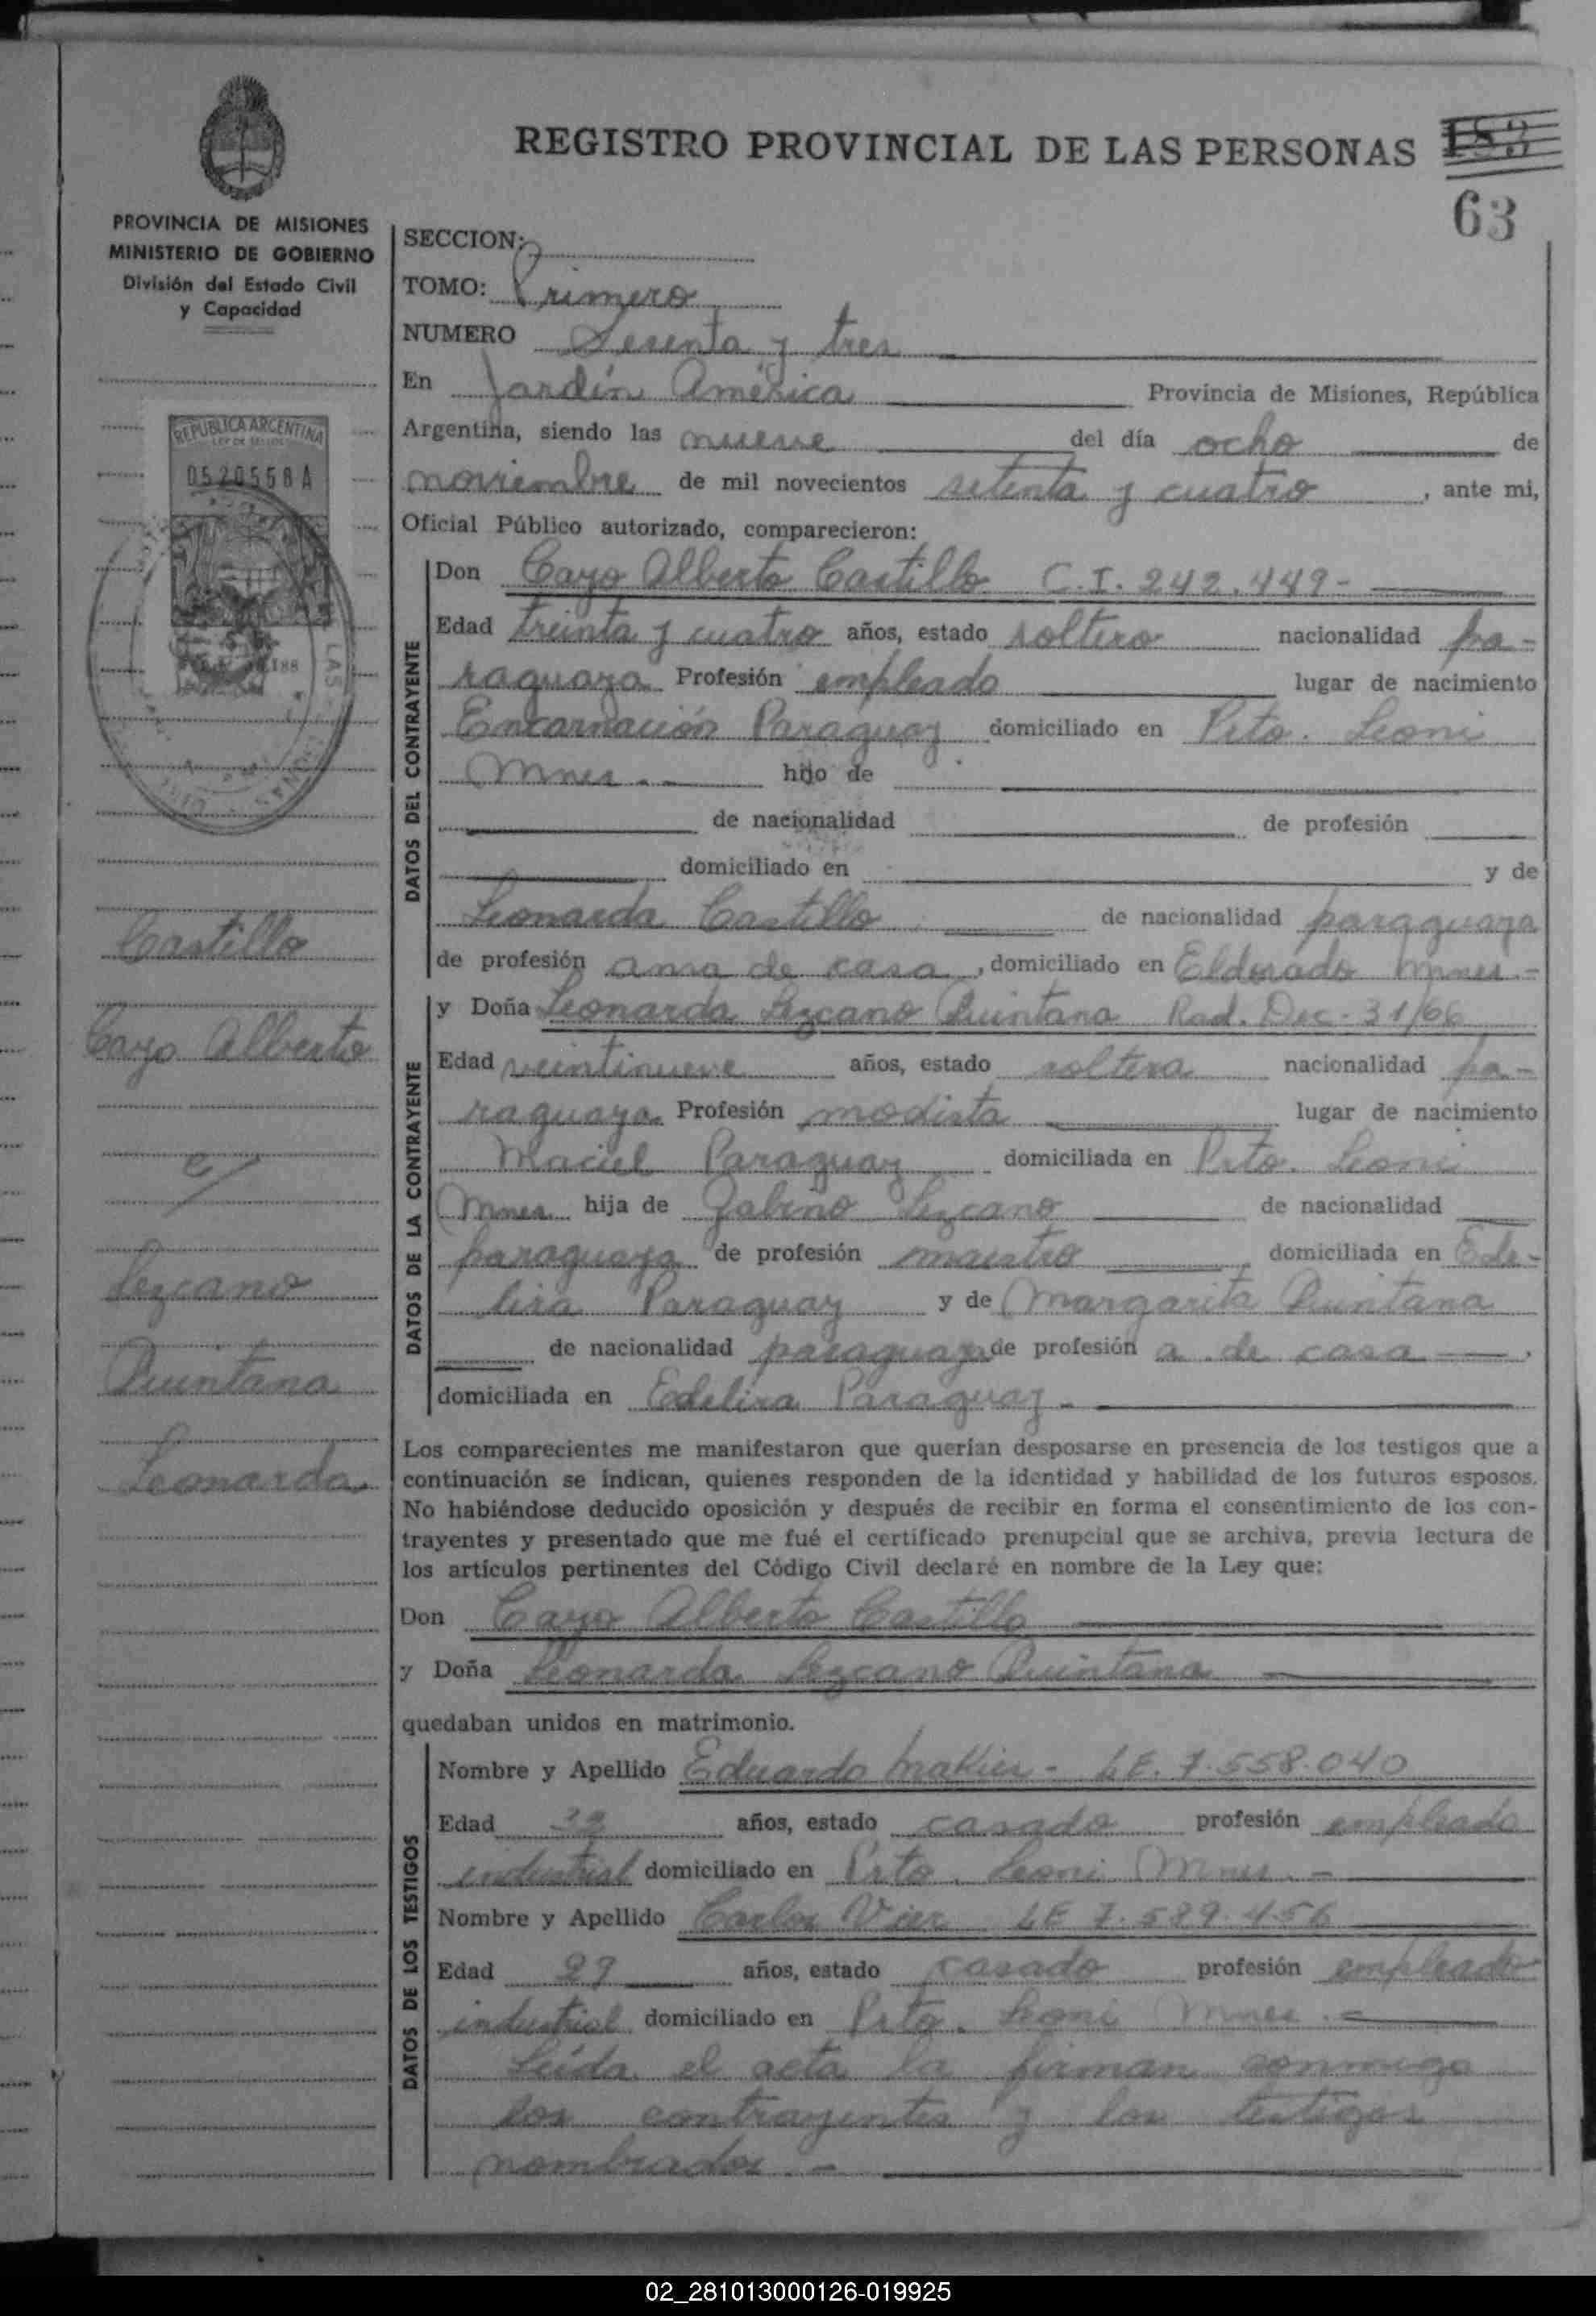 REGISTRO PROVINCIAL DE LAS PERSONAS 183
63
PROVINCIA DE MISIONES
MINISTERIO DE GOBIERNO
División del Estado Civil
y Capacidad
REPUBLICA ARGENTINA
LEY DE SELLOS
0520558 A
LAS
188
Castillo
Cayo Alberto
c/
Lezcano
Quintana
Leonarda
SECCION:
TOMO: Primero
NUMERO Sesenta y tres
En Jardín América Provincia de Misiones, República
Argentina, siendo las nueve del día ocho de
noviembre de mil novecientos setenta y cuatro, ante mi,
Oficial Público autorizado, comparecieron:
DATOS DEL CONTRAYENTE
Don Cayo Alberto Castillo C.I. 242.449-
Edad treinta y cuatro años, estado soltero nacionalidad pa-
raguaya Profesión empleado lugar de nacimiento
Encarnación Paraguay domiciliado en Pto. Leoni
Mnes.- hijo de
de nacionalidad de profesión
domiciliado en y de
Leonarda Castillo de nacionalidad paraguaya
de profesión ama de casa, domiciliado en Eldorado Mnes.-
DATOS DE LA CONTRAYENTE
y Doña Leonarda Lezcano Quintana Rad. Dec. 31/66
Edad veintinueve años, estado soltera nacionalidad pa-
raguaya Profesión modista lugar de nacimiento
Maciel Paraguay domiciliada en Pto. Leoni
Mnes hija de Gabino Lezcano de nacionalidad
paraguaya de profesión maestro domiciliada en Ede-
lira Paraguay y de Margarita Quintana
de nacionalidad paraguaya de profesión a. de casa,
domiciliada en Edelira Paraguay-
Los comparecientes me manifestaron que querían desposarse en presencia de los testigos que a
continuación se indican, quienes responden de la identidad y habilidad de los futuros esposos.
No habiéndose deducido oposición y después de recibir en forma el consentimiento de los con-
trayentes y presentado que me fué el certificado prenupcial que se archiva, previa lectura de
los artículos pertinentes del Código Civil declaré en nombre de la Ley que:
Don Cayo Alberto Castillo
y Doña Leonarda Lezcano Quintana
quedaban unidos en matrimonio.
DATOS DE LOS TESTIGOS
Nombre y Apellido Eduardo - LE. 7.558.040
Edad años, estado casado profesión empleado
industrial domiciliado en Pto. Leoni Mnes.-
Nombre y Apellido Carlos Vier LE 7.589.456
Edad 29 años, estado casado profesión empleado
industrial domiciliado en Pto. Leoni Mnes.-
Leída el acta la firman conmigo
los contrayentes y los testigos
nombrados-
02_281013000126-019925